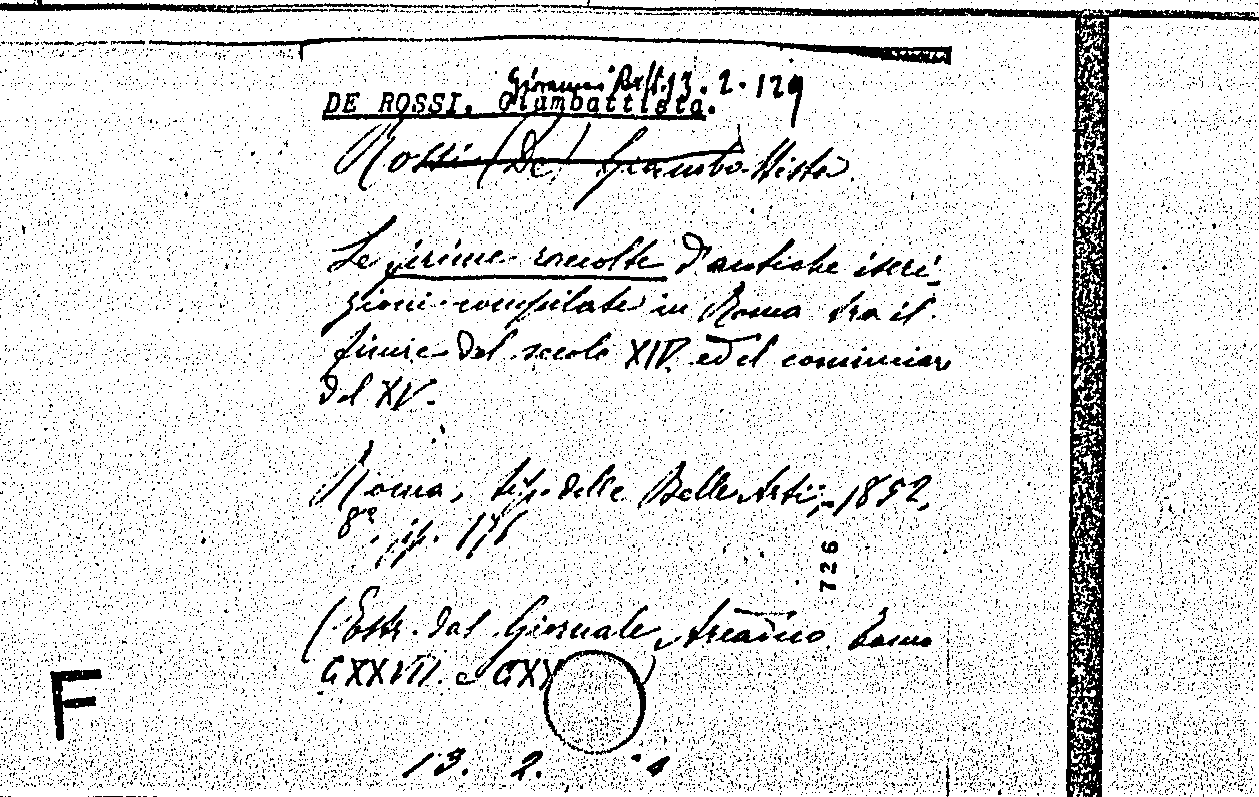 Giovanni Batt. 13.2.129
DE ROSSI, Giambattista.
Rossi (De) Giambattista.
Le prime raccolte d'antiche iscri-
zioni compilate in Roma tra il
finire del secolo XIV ed il cominciar
del XV.
Roma, tip. delle Belle Arti, 1852,
8º. pp. 176
726
(Estr. dal Giornale Arcadico Tomo
CXXVII. e CXX )
F
13. 2. 4